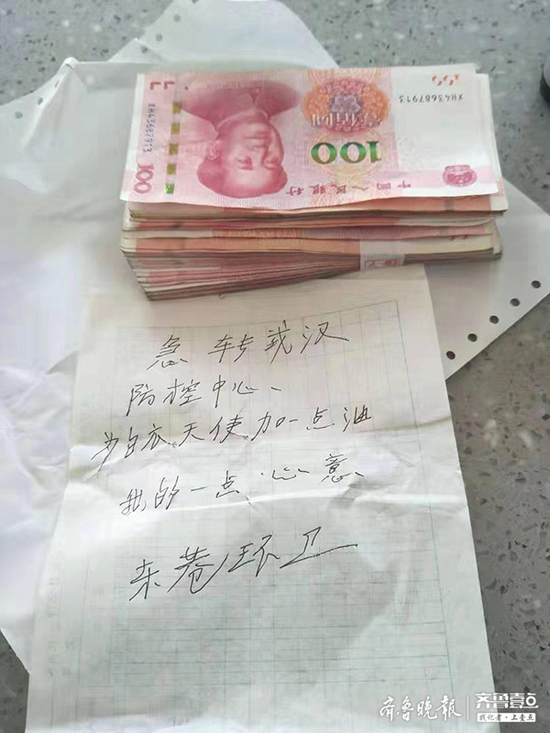 100
XH43687913
中国人民银行
100
XH43687913
100
急转武汉
防控中心、
为白衣天使加一点油
我的一点心意
东巷环卫
齐鲁晚报
齐鲁壹点
找记者·上壹点